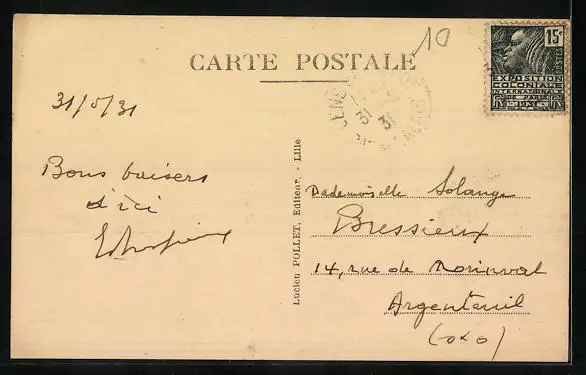 10
CARTE POSTALE
15c
POSTES
EXPOSITION
COLONIALE
INTERNATIONALE
DE PARIS
1931
31
31
31/5/31
Bons baisers
d'ici
Lucien POLLET, Editeur. - Lille
Mademoiselle Solange
Bressieux
14, rue de
Argenteuil
(oxo)